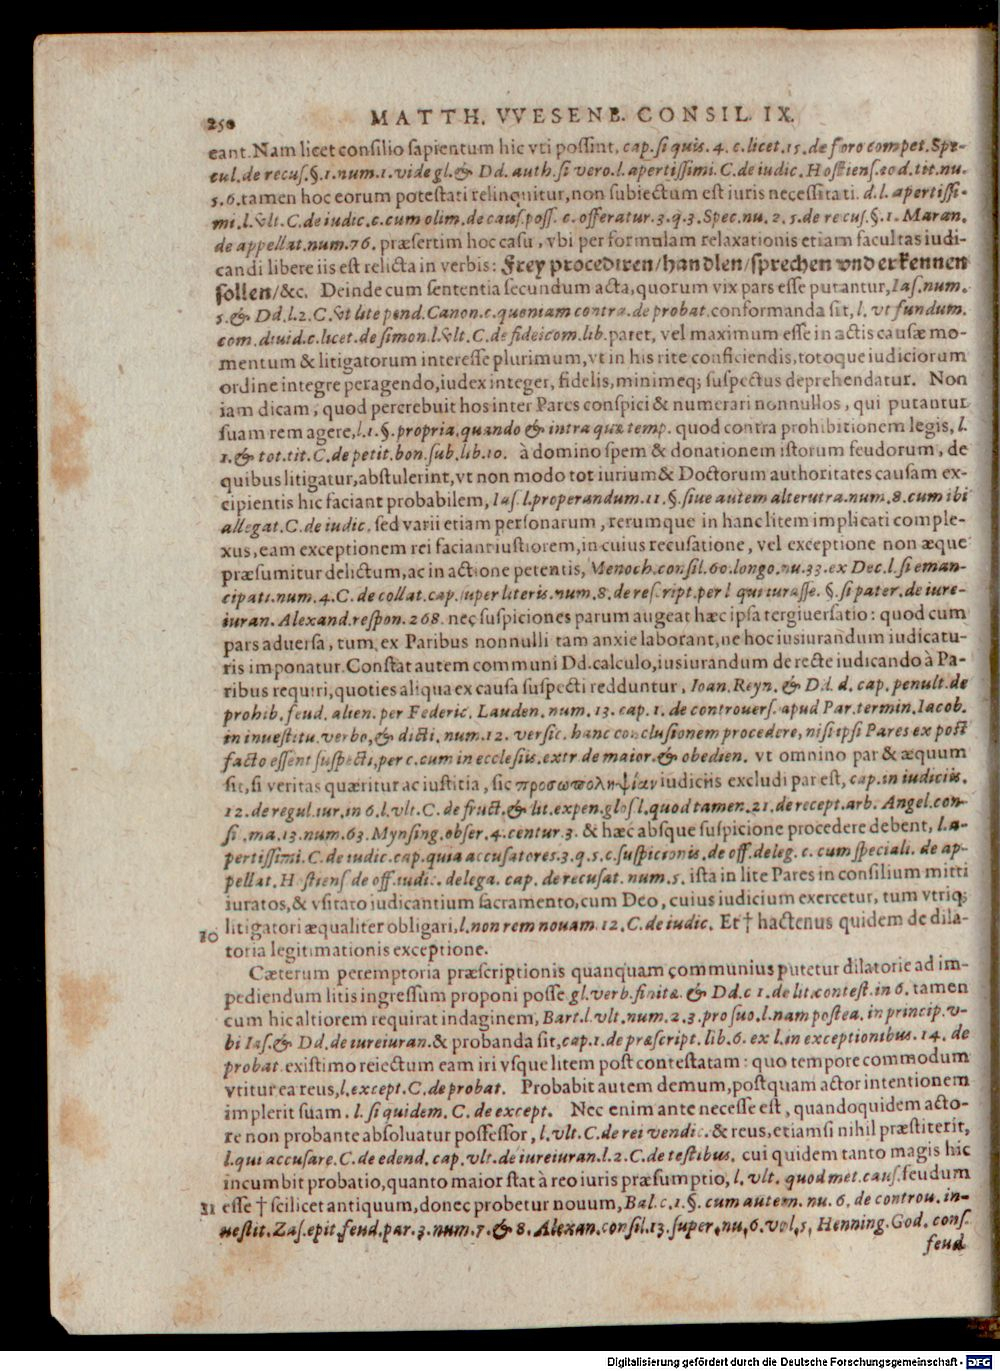 250 MATTH. VVESENB. CONSIL. IX.
eant. Nam licet consilio sapientum hic vti possint, cap. si quis. 4. c. licet. 15. de foro compet. Spe-
cul. de recus. §. 1. num. 1. vide gl. & Dd. auth. si vero. l. apertissimi. C. de iudic. Hostiens. eod. tit. nu.
5. 6. tamen hoc eorum potestati relinquitur, non subiectum est iuris necessitati. d. l. apertissi-
mi. l. vlt. C. de iudic. c. cum olim. de caus. poss. c. offeratur. 3. q. 3. Spec. nu. 2. 5. de recus. §. 1. Maran.
de appellat. num. 76. præsertim hoc casu, vbi per formulam relaxationis etiam facultas iudi-
candi libere iis est relicta in verbis: Frey procediren/handlen/sprechen vnd erkennen
sollen/&c. Deinde cum sententia secundum acta, quorum vix pars esse putantur, Ias. num.
5. & Dd. l. 2. C. vt lite pend. Canon. c. quoniam contra. de probat. conformanda sit, l. vt fundum.
com. diuid. c. licet. de simon. l. vlt. C. de fideicom. lib. paret, vel maximum esse in actis causæ mo-
mentum & litigatorum interesse plurimum, vt in his rite conficiendis, totoque iudiciorum
ordine integre peragendo, iudex integer, fidelis, minimeq; suspectus deprehendatur. Non
iam dicam, quod percrebuit hos inter Pares conspici & numerari nonnullos, qui putantur
suam rem agere, l. 1. §. propria. quando & intra quæ temp. quod contra prohibitionem legis, l.
1. & tot. tit. C. de petit. bon. sub. lib. 10. à domino spem & donationem istorum feudorum, de
quibus litigatur, abstulerint, vt non modo tot iurium & Doctorum authoritates causam ex-
cipientis hic faciant probabilem, Ias. l. properandum. 11. §. siue autem alterutra. num. 8. cum ibi
allegat. C. de iudic. sed varii etiam personarum, rerumque in hanc litem implicati comple-
xus, eam exceptionem rei faciant iustiorem, in cuius recusatione, vel exceptione non æque
præsumitur delictum, ac in actione petentis, Menoch. consil. 60. longo. nu. 33. ex Dec. l. si eman-
cipati. num. 4. C. de collat. cap. super literis. num. 8. de rescript. per l. qui iurasse. §. si pater. de iure-
iuran. Alexand. respon. 268. nec suspiciones parum augeat hæc ipsa tergiuersatio: quod cum
pars aduersa, tum ex Paribus nonnulli tam anxie laborant, ne hoc iusiurandum iudicatu-
ris imponatur. Constat autem communi Dd. calculo, iusiurandum de recte iudicando à Pa-
ribus requiri, quoties aliqua ex causa suspecti redduntur, Ioan. Reyn. & Dd. d. cap. penult. de
prohib. feud. alien. per Federic. Lauden. num. 13. cap. 1. de controuers. apud Par. termin. Iacob.
in inuestitu. verbo, & dicti. num. 12. versic. hanc conclusionem procedere, nisi ipsi Pares ex post
facto essent suspecti, per c. cum in ecclesiis. extr. de maior. & obedien. vt omnino par & æquum
sit, si veritas quæritur ac iustitia, sic προσωποληψίαν iudiciis excludi par est, cap. in iudiciis.
12. de regul. iur. in 6. l. vlt. C. de fruct. & lit. expen. glos. l. quod tamen. 21. de recept. arb. Angel. con-
si. ma. 13. num. 63. Mynsing. obser. 4. centur. 3. & hæc absque suspicione procedere debent, l. a-
pertissimi. C. de iudic. cap. quia accusatores. 3. q. 5. c. suspicionis. de off. deleg. c. cum speciali. de ap-
pellat. Hostiens de off. iudic. delega. cap. de recusat. num. 5. ista in lite Pares in consilium mitti
iuratos, & vsitato iudicantium sacramento, cum Deo, cuius iudicium exercetur, tum vtriq;
litigatori æqualiter obligari, l. non rem nouam. 12. C. de iudic. Et † hactenus quidem de dila-
30 toria legitimationis exceptione.
Cæterum peremptoria præscriptionis quanquam communius putetur dilatorie ad im-
pediendum litis ingressum proponi posse gl. verb. finitæ. & Dd. c 1. de lit. contest. in 6. tamen
cum hic altiorem requirat indaginem, Bart. l. vlt. num. 2. 3. pro suo. l. nam postea. in princip. v-
bi Ias. & Dd. de iureiuran. & probanda sit, cap. 1. de præscript. lib. 6. ex l. in exceptionibus. 14. de
probat. existimo reiectum eam iri vsque litem post contestatam: quo tempore commodum
vtitur ea reus, l. except. C. de probat. Probabit autem demum, postquam actor intentionem
implerit suam. l. si quidem. C. de except. Nec enim ante necesse est, quandoquidem acto-
re non probante absoluatur possessor, l. vlt. C. de rei vendic. & reus, etiamsi nihil præstiterit,
l. qui accusare. C. de edend. cap. vlt. de iureiuran. l. 2. C. de testibus. cui quidem tanto magis hic
incumbit probatio, quanto maior stat à reo iuris præsumptio, l. vlt. quod met. caus. feudum
31 esse † scilicet antiquum, donec probetur nouum, Bal. c. 1. §. cum autem. nu. 6. de controu. in-
uestit. Zas. epit. feud. par. 3. num. 7. & 8. Alexan. consil. 13. super. nu. 6. vol. 5. Henning. God. cons.
feud
Digitalisierung gefördert durch die Deutsche Forschungsgemeinschaft - DFG